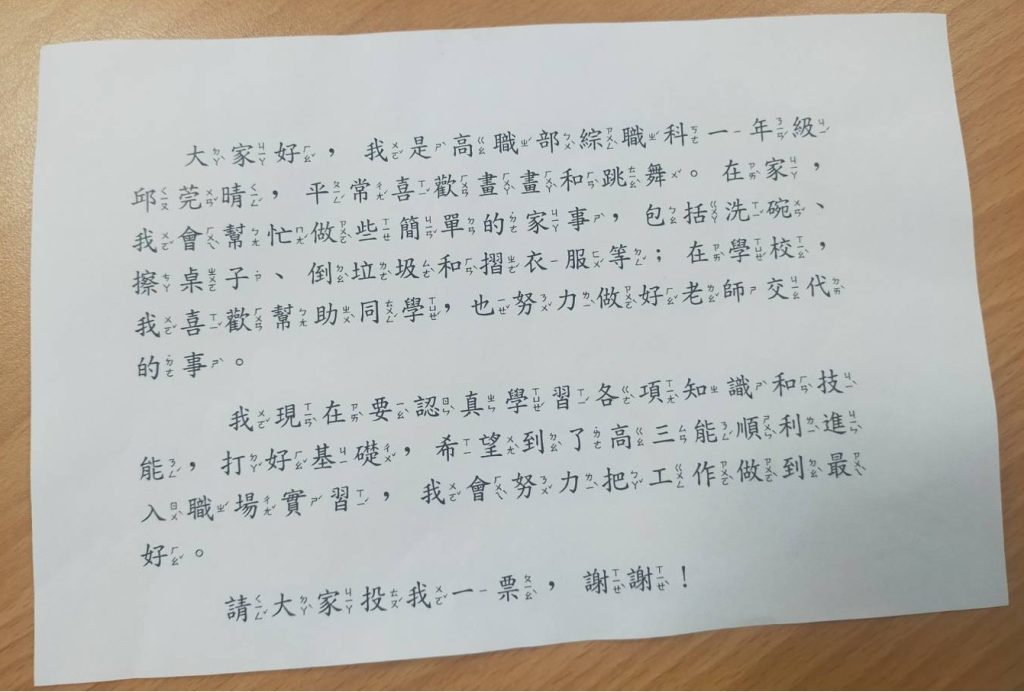 大家好，我是高職部綜職科一年級
邱莞晴，平常喜歡畫畫和跳舞。在家，
我會幫忙做些簡單的家事，包括洗碗、
擦桌子、倒垃圾和摺衣服等；在學校，
我喜歡幫助同學，也努力做好老師交代
的事。
我現在要認真學習各項知識和技
能，打好基礎，希望到了高三能順利進
入職場實習，我會努力把工作做到最
好。
請大家投我一票，謝謝！